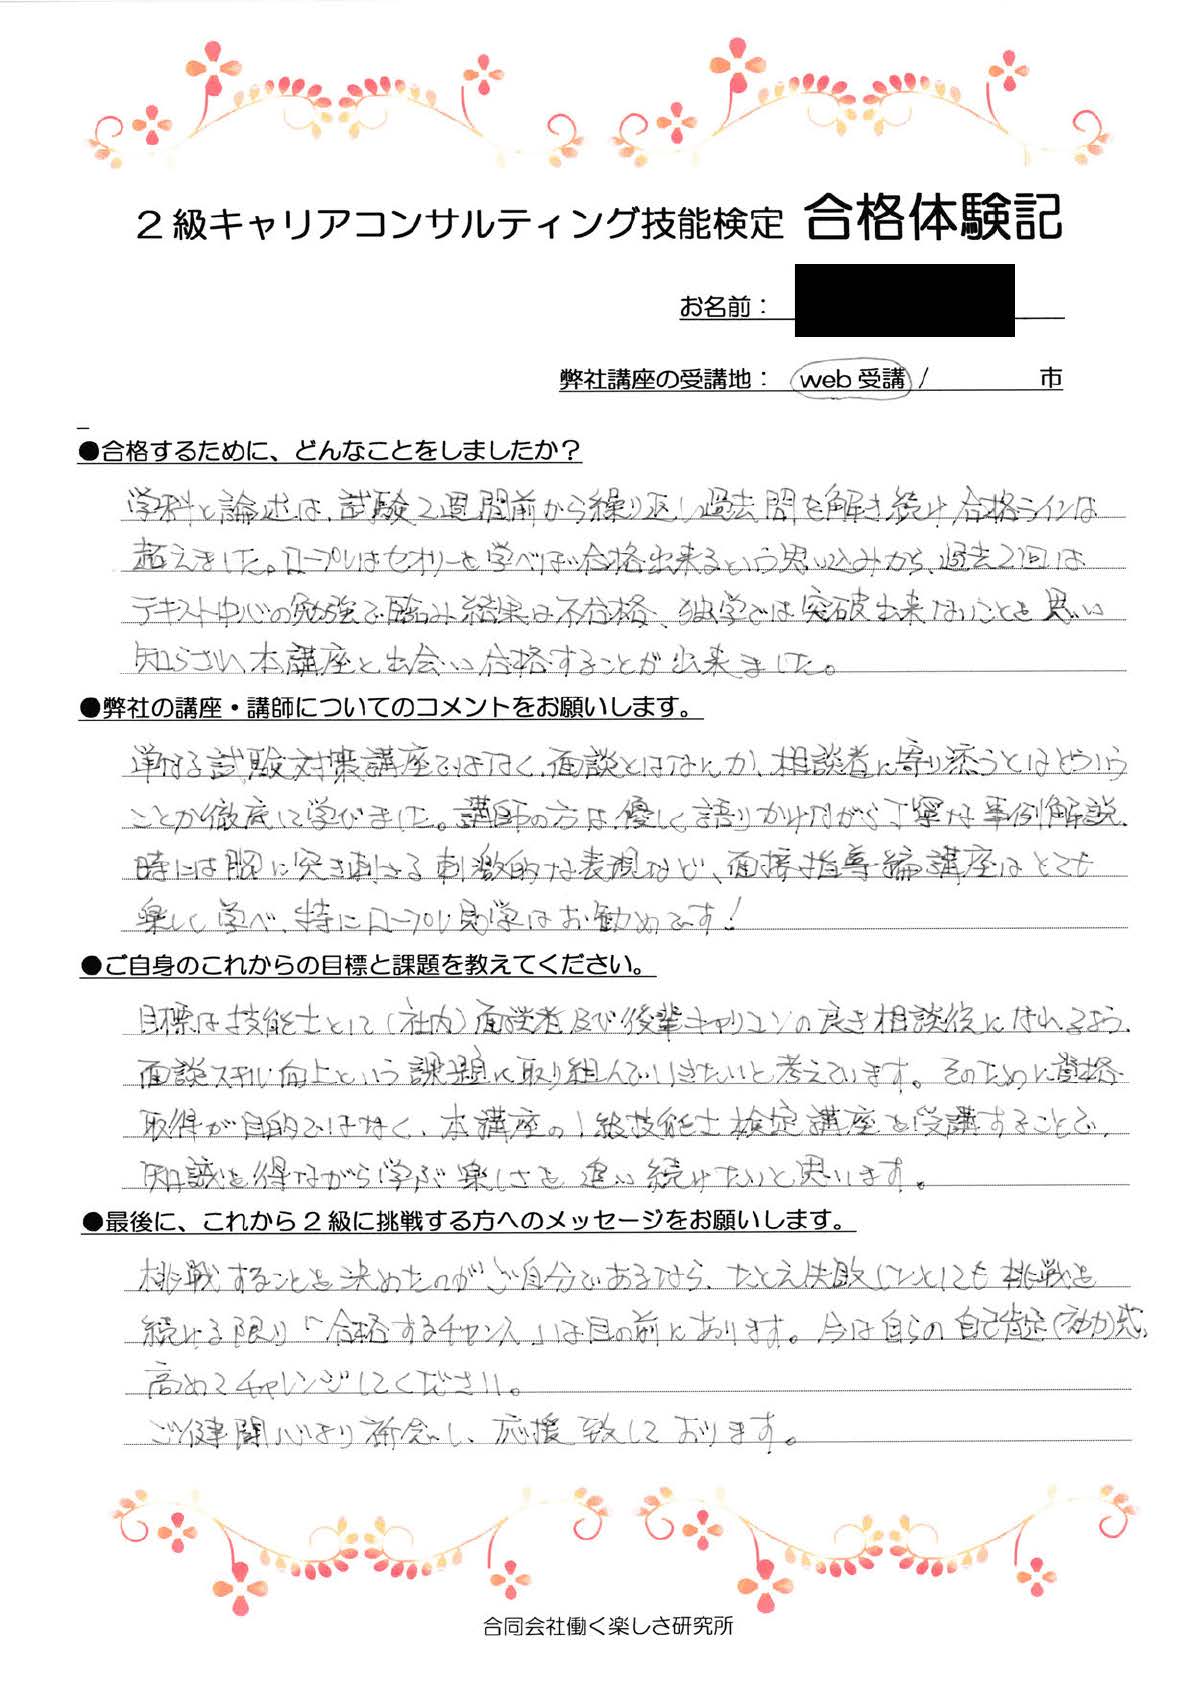 2級キャリアコンサルティング技能検定 合格体験記
お名前：
弊社講座の受講地： web受講 / 市
●合格するために、どんなことをしましたか？
学科と論述は、試験2週間前から繰り返し過去問を解き続け合格ラインは
超えました。ロープレはセオリーを学べば合格出来るという思い込みから、過去2回は
テキスト中心の勉強で臨み結果は不合格、独学では突破出来ないことを思い
知らされ、本講座と出会い合格することが出来ました。
●弊社の講座・講師についてのコメントをお願いします。
単なる試験対策講座ではなく、面談とはなんか、相談者に寄り添うとはどういう
ことか徹底して学びました。講師の方は、優しく語りかけながら丁寧な事例解説、
時には胸に突き刺さる刺激的な表現など、面接指導編講座はとても
楽しく学べ、特にロープレ見学はお勧めです！
●ご自身のこれからの目標と課題を教えてください。
目標は技能士として（社内）面談者及び後輩キャリコンの良き相談役になれるよう、
面談スキル向上という課題に取り組んでいきたいと考えています。そのために資格
取得が目的ではなく、本講座の1級技能士検定講座を受講することで、
知識を得ながら学ぶ楽しさを追い続けたいと思います。
●最後に、これから2級に挑戦する方へのメッセージをお願いします。
挑戦することを決めたのがご自分であるなら、たとえ失敗したとしても挑戦を
続ける限り「合格するチャンス」は目の前にあります。今は自らの自己肯定(効力)感、
高めてチャレンジしてください。
ご健闘心より祈念し、応援致しております。
合同会社働く楽しさ研究所